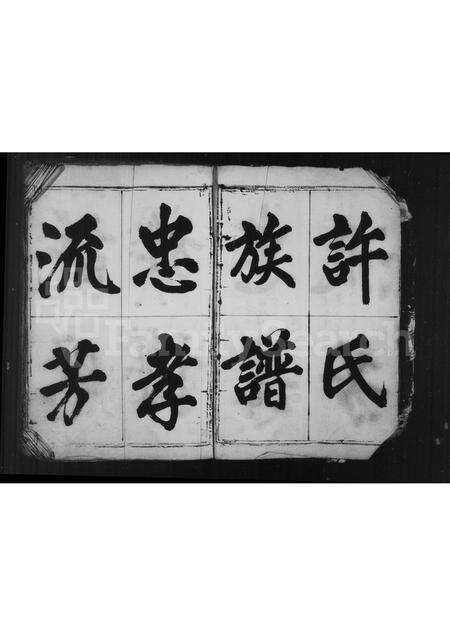 許氏
族譜
忠孝
流芳
FamilySearch